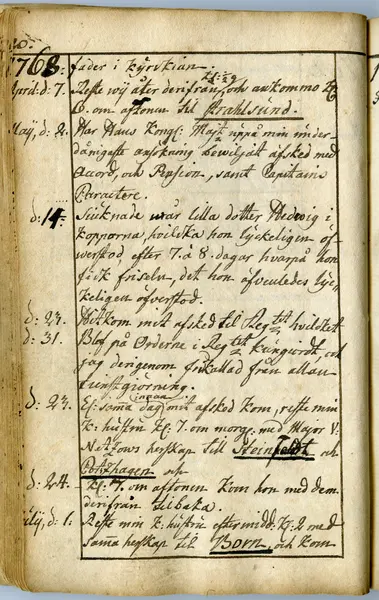 1768. fader i kyrkian.
April: d: 7. Reste wij åter derifrån, och ankommo
kl: 1/2 9
om aftonen til Strahlsund.
Maij, d: 2. Har Hans Kongl: Maj:t uppå min under-
dånigste ansökning bewiljat afsked med
Accord, och Pension, samt Capitains
Caractere.
d: 14. Siuknade wår lilla dotter Hedwig i
kopporna hvilka hon lyckeligen öf-
werstod efter 7. à 8. dagar hwarpå hon
fick friseln, det hon äfvenledes lyc-
keligen öfverstod.
d: 23. Hitkom mit afsked til Reg:tet hvilcket
d: 31. Blef på Orderne i Reg:tet kungiordt, och
jag derigenom frikallad från allan
tienstgiörning.
d: 23. samma dag mit afsked kom, reste min
innan
k: hustru kl. 7. om morg: med Major V.
herskap till Steinfeldt och
och
d: 24. Kl: 7. om aftonen kom hon med dem
derifrån tilbaka.
d: 1. Reste min k: hustru eftermidd: kl: 2 med
samma herskap til Born, och kom